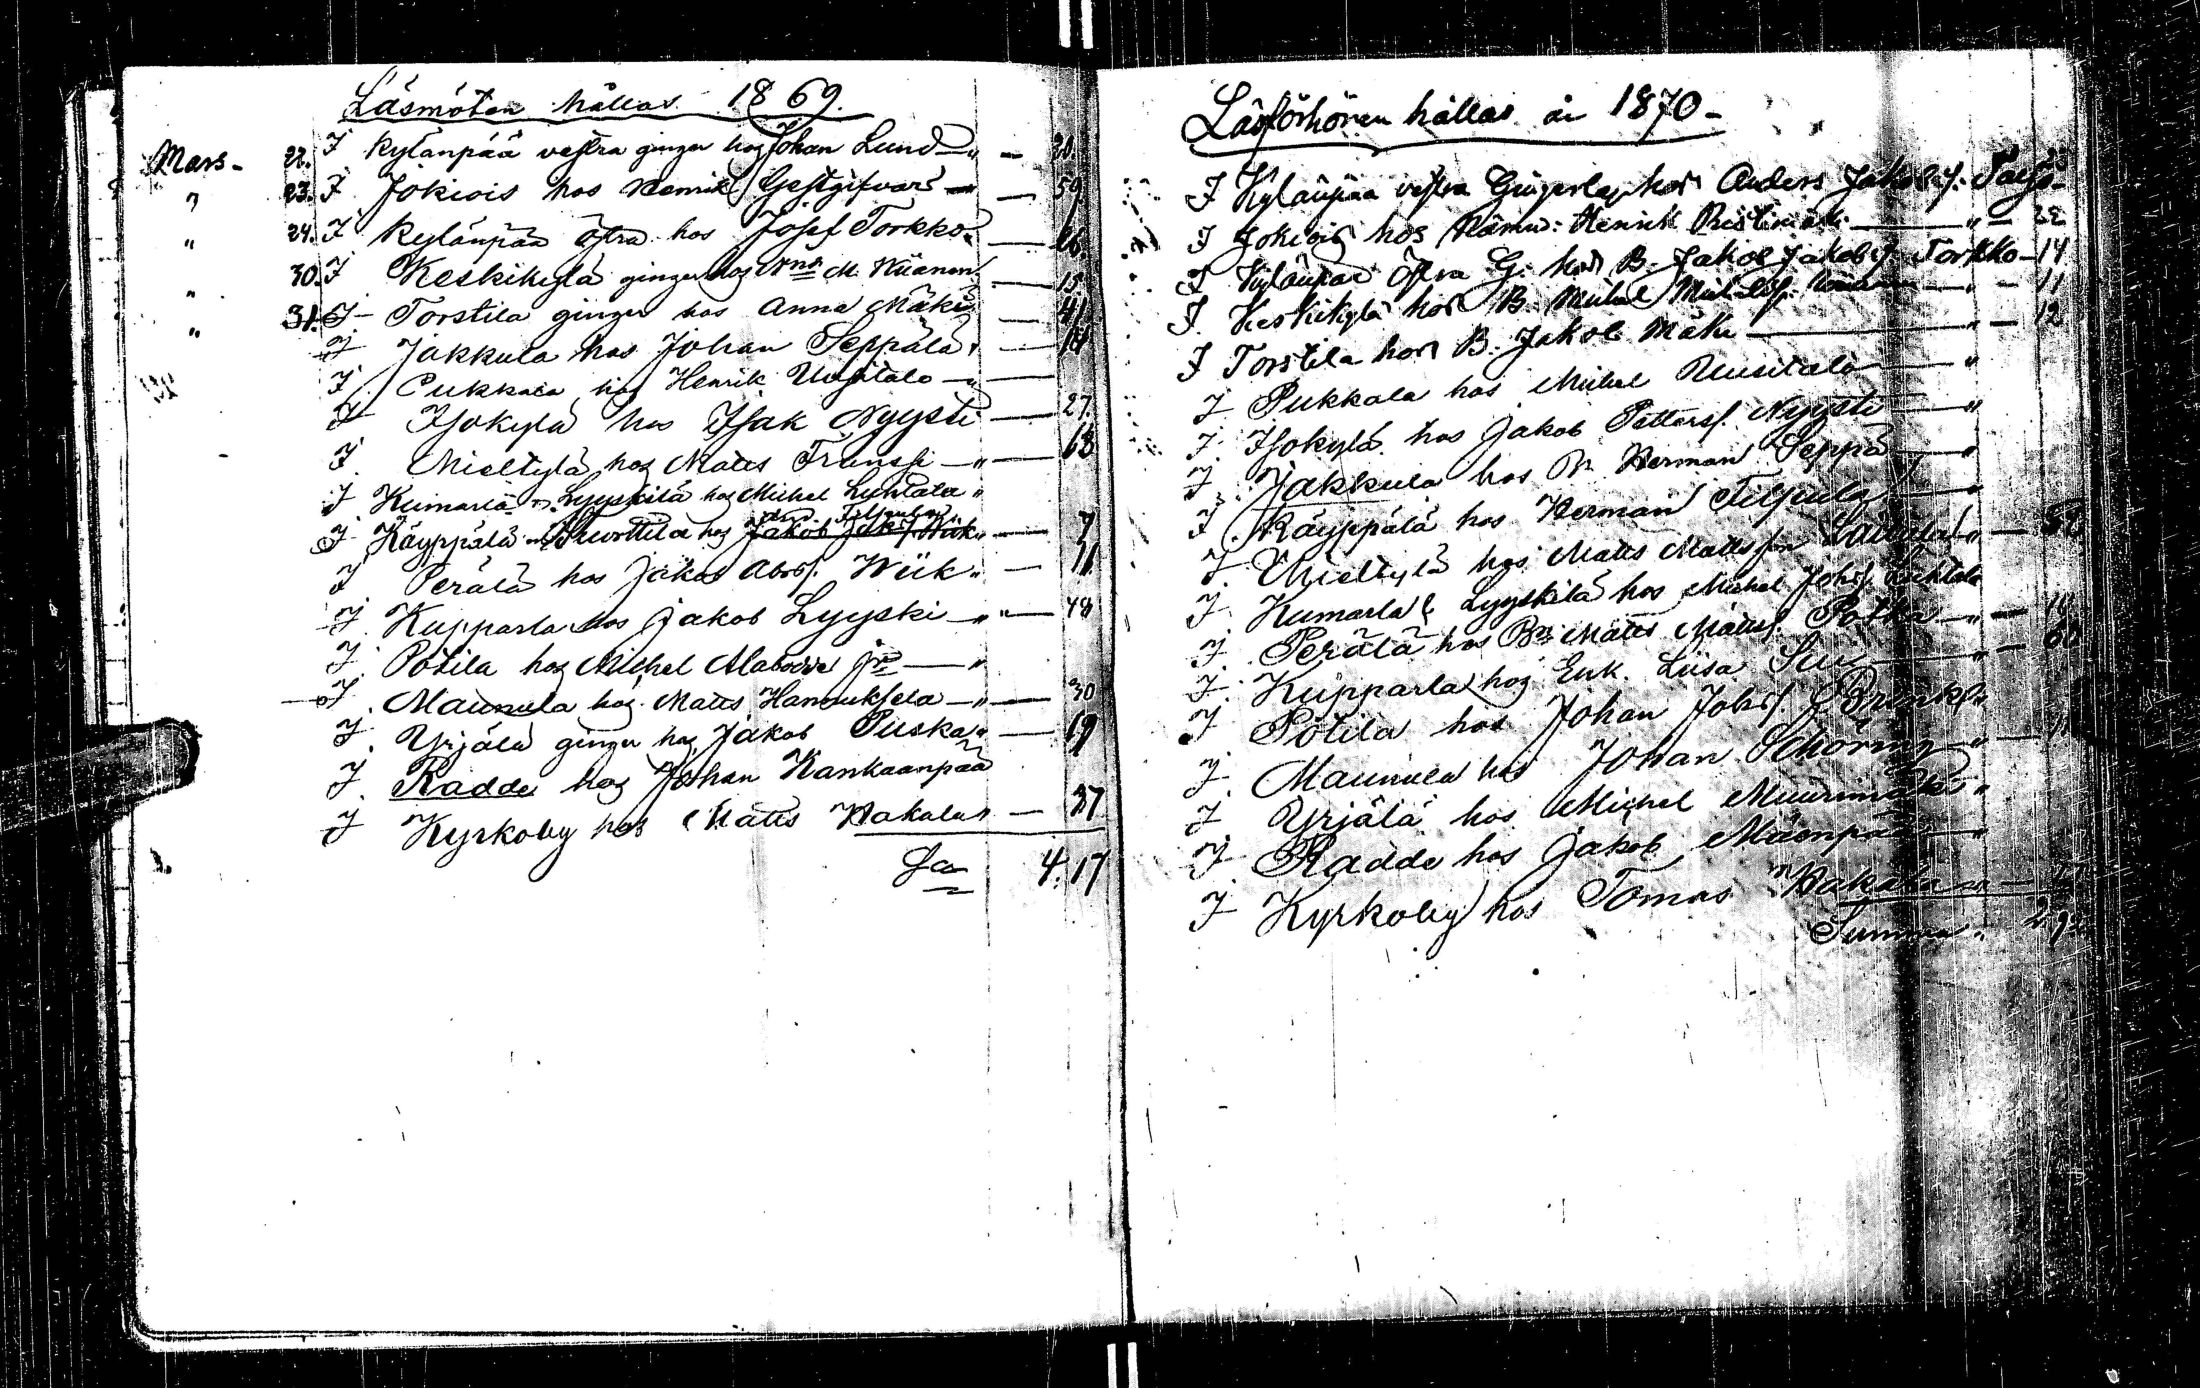 Läsmöten hållas 1869.
Mars - 22. I Kylänpää vestra ginger hos Johan Lund — " — 20.
" 23. I Jokiois hos Henrik Gestgifvars — 59.
" 24. I Kylänpää östra hos Josef Torkko — 26.
" 30. I Keskikylä ginger hos M. — 15.
" 31. I Torstila ginger hos Anna Mäki — 41.
I Jakkula hos Johan Seppälä —
I Pukkala hos Henrik Uusitalo — "
I Isokylä hos Isak Nyysti — 27.
I Mieltylä hos Matts Franssi — " — 68
I Kumarla Lyyskilä hos Michel Luhtala "
I Käyppälä hos Jakob Wiik " — 7
I Perälä hos Jakob Abrs. Wiik " — 11
I Kupparla hos Jakob Lyyski — " — 48
I Potila hos Michel — "
I Maunula hos Matts Hannuksela — " — 30
I Yrjälä ginger hos Jakob Puska " — 19
I Radde hos Johan Kankaanpää
I Kyrkoby hos Matts Hakala " — 37
S:a 4.17
Läsförhören hållas år 1870 -
I Kylänpää vestra hos Anders Jakobs.
I Jokiois hos Nämd: Henrik Ristimäki — " — 22
I Kylänpää östra G. hos B. Jakob Jakobs. Torkko — 14
I Keskikylä hos B. Mickel — " — 11
I Torstila hos B. Jakob Mäki — " — 12
I Pukkala hos Mickel Uusitalo — "
I Isokylä hos Jakob Petterss. Nyysti — "
I Jakkula hos B. Herman Seppä — "
I Käyppälä hos Herman — "
I Mieltylä hos Matts Mattsson — " —
I Kumarla & Lyyskilä hos Mickel Johs. Luhtala
I Perälä hos Bn Matts Mattss. Potka — " —
I Kupparla hos Enk. Liisa — " — 60
I Potila hos Johan Johs.
I Maunula hos Johan Schöring — " — 11
I Yrjälä hos Michel Muurimäki "
I Radde hos Jakob Mäenpää — "
I Kyrkoby hos Tomas Hakala — " —
Summa.